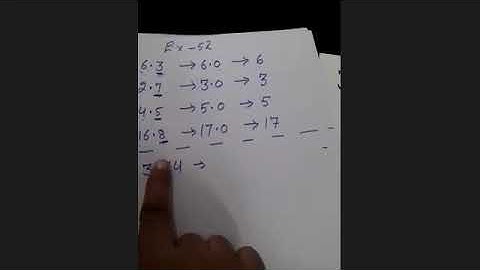 Ex-52
6.3 → 6.0 → 6
2.7 → 3.0 → 3
4.5 → 5.0 → 5
16.8 → 17.0 → 17